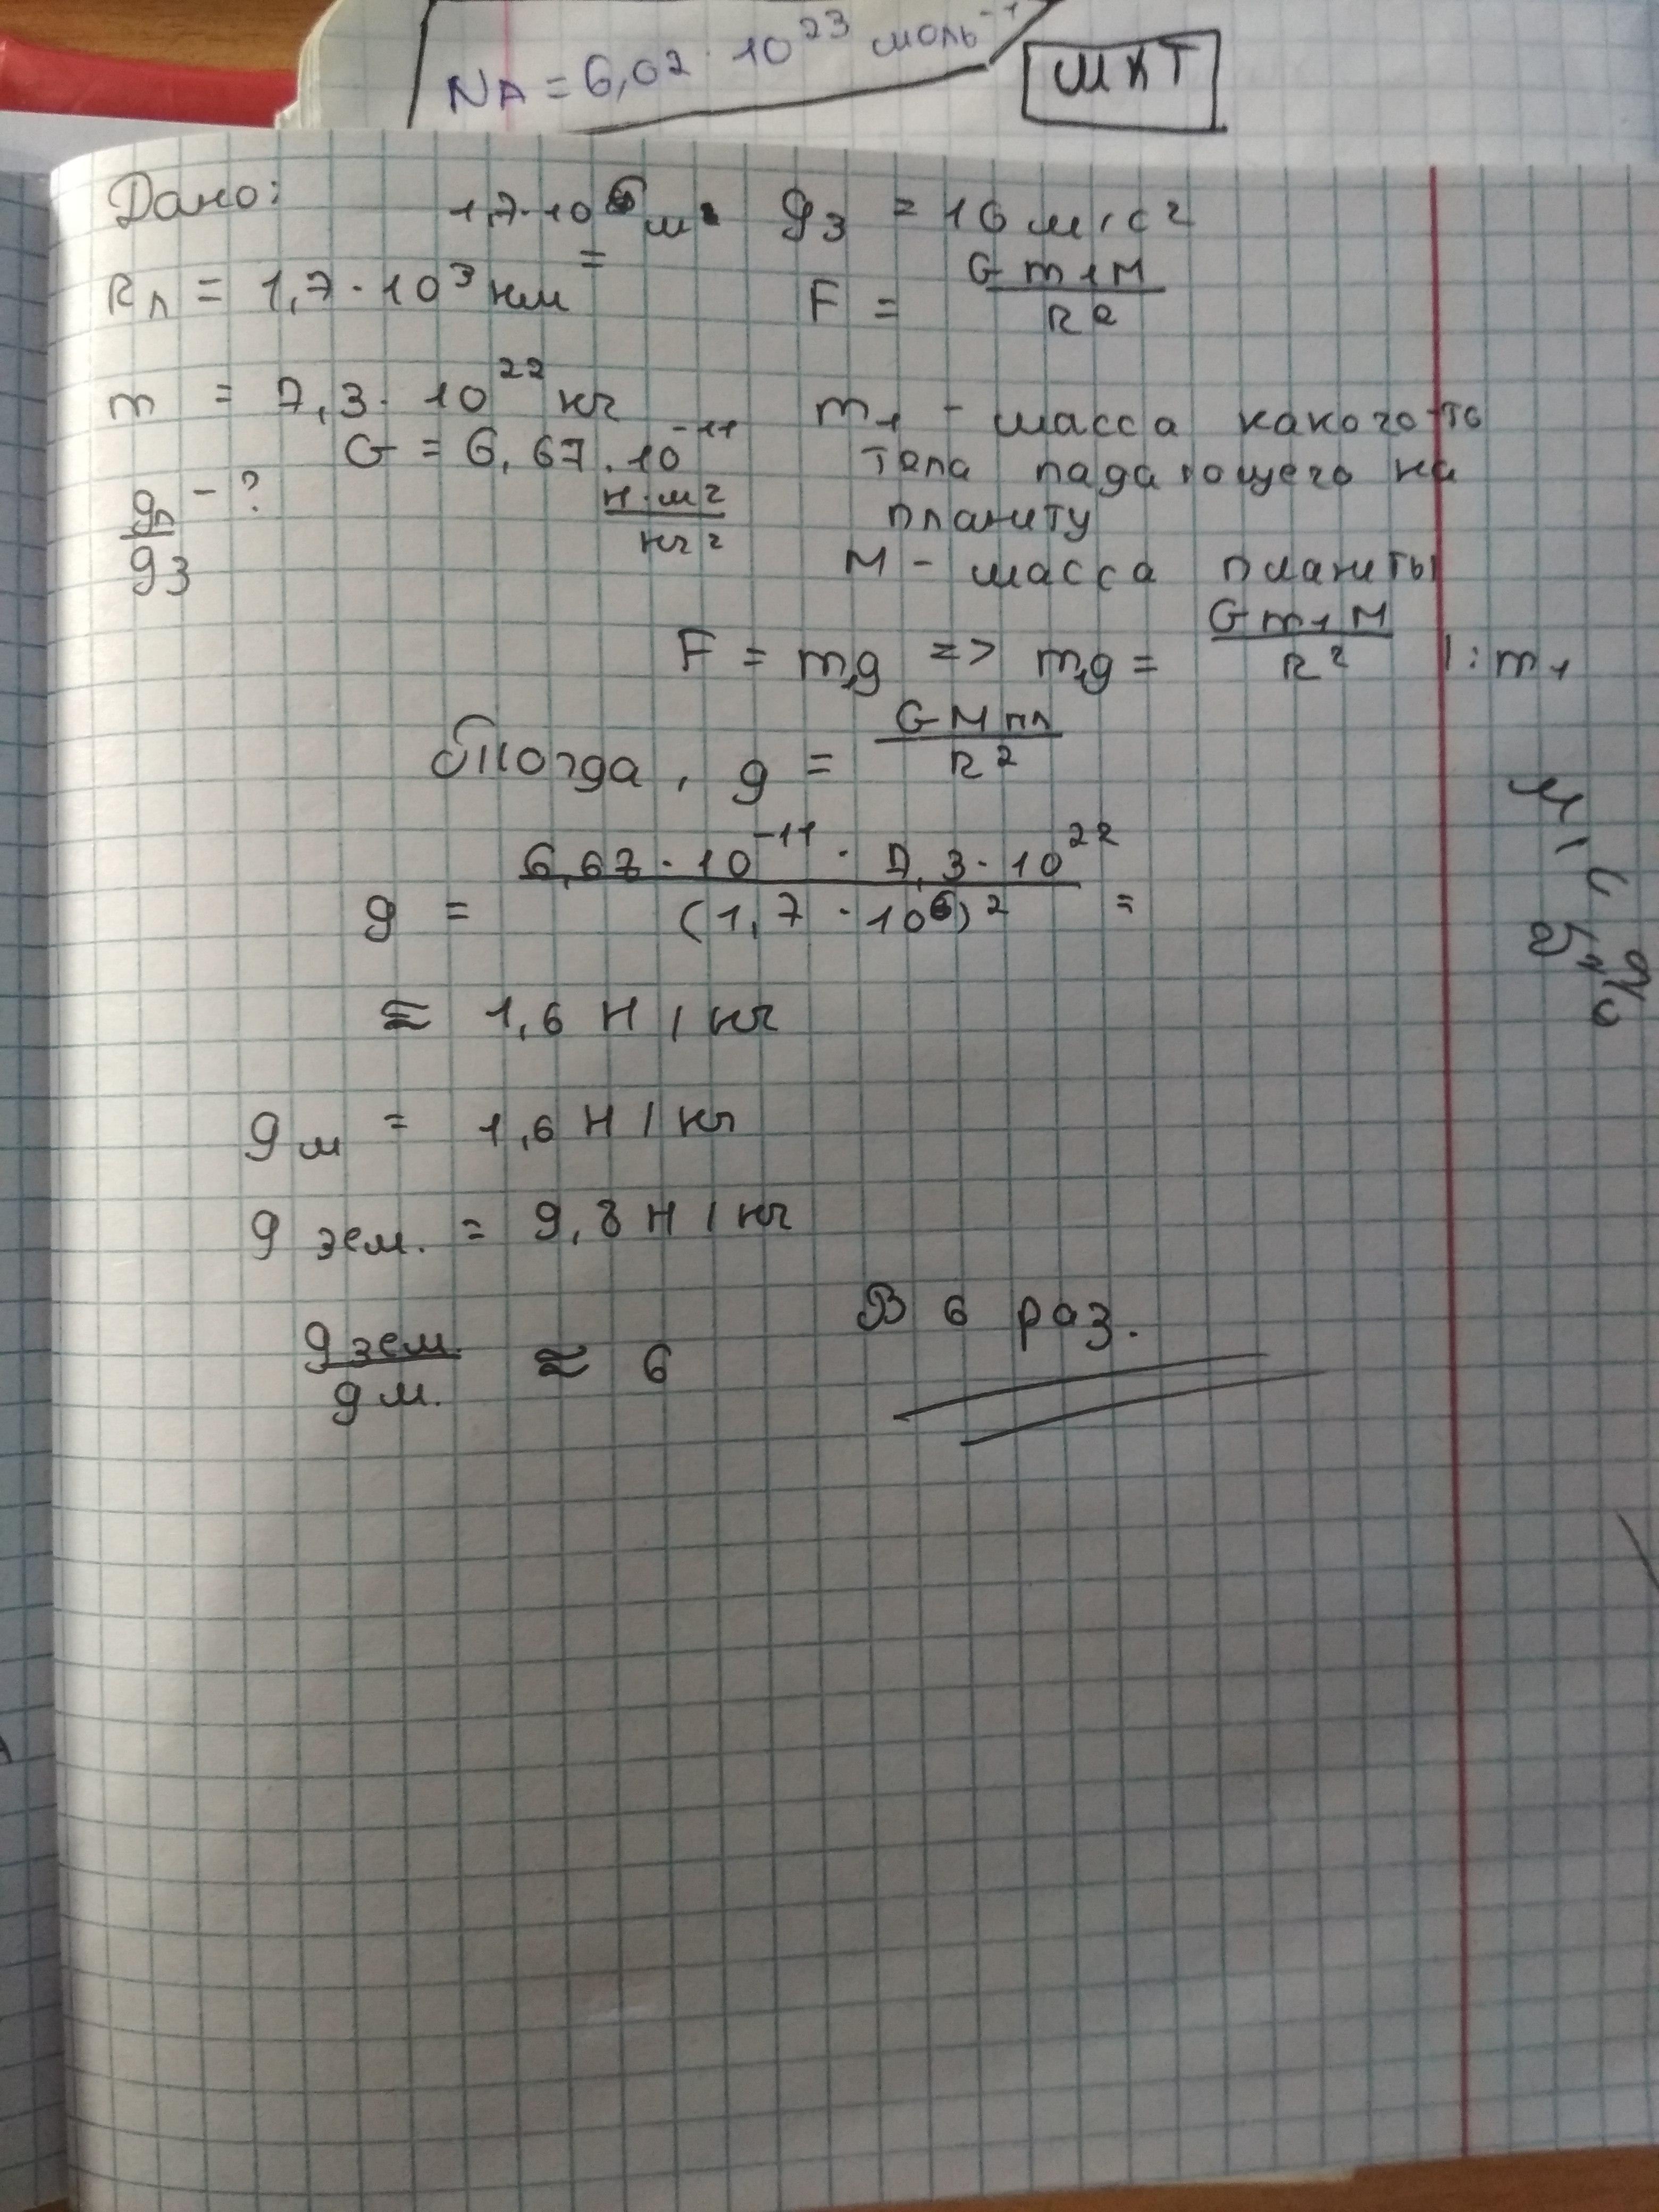 NA = 6,02 · 10²³ моль⁻¹
МКТ
Дано:
1,7·10⁶ м
=
Rл = 1,7·10³ км
m = 7,3·10²² кг
G = 6,67·10⁻¹¹
н·м²/кг²
gл/gз - ?
gз = 10 м/с²
F = Gm₁M/R²
m₁ - масса какого-то
тела падающего на
планиту
M - масса планиты
F = m₁g => m₁g = Gm₁M/R² |:m₁
Тогда, g = GMпл/R²
g = 6,67·10⁻¹¹ · 7,3·10²²/(1,7·10⁶)² =
≈ 1,6 Н/кг
gм = 1,6 Н/кг
g зем. = 9,8 Н/кг
g зем./g м. ≈ 6
В 6 раз.